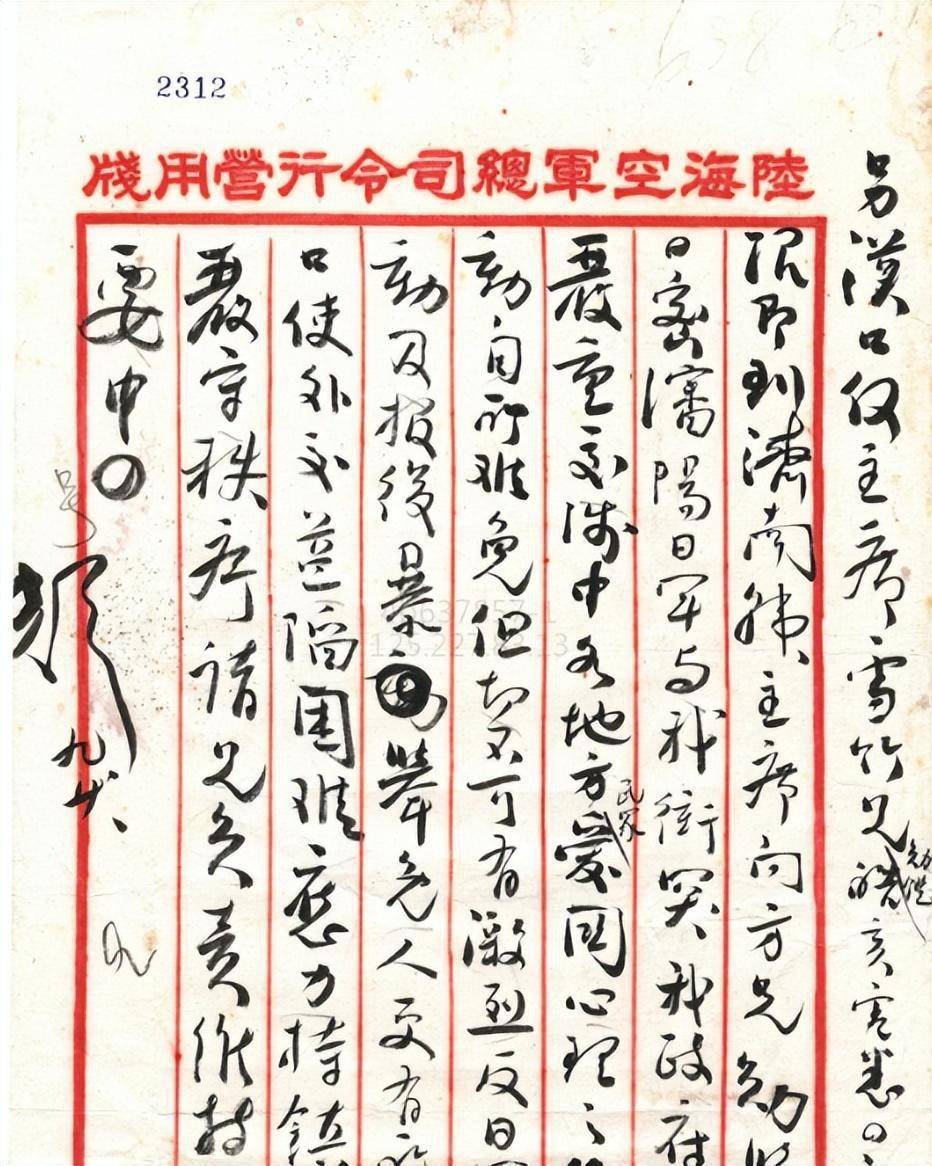 2312
陸海空軍總司令行營用牋
另漢口何主席雪竹兄勛鑒亥電悉
限即到濟南韓主席向方兄勛
日密瀋陽日軍與我衝突我政府
嚴重交涉中各地方民眾愛國心理之
動自所難免但切不可有激烈反日
動及報復暴舉免人更有
口使外交益陷困難應力持鎮
嚴守秩序請兄負責維持
要中
號
九廿、